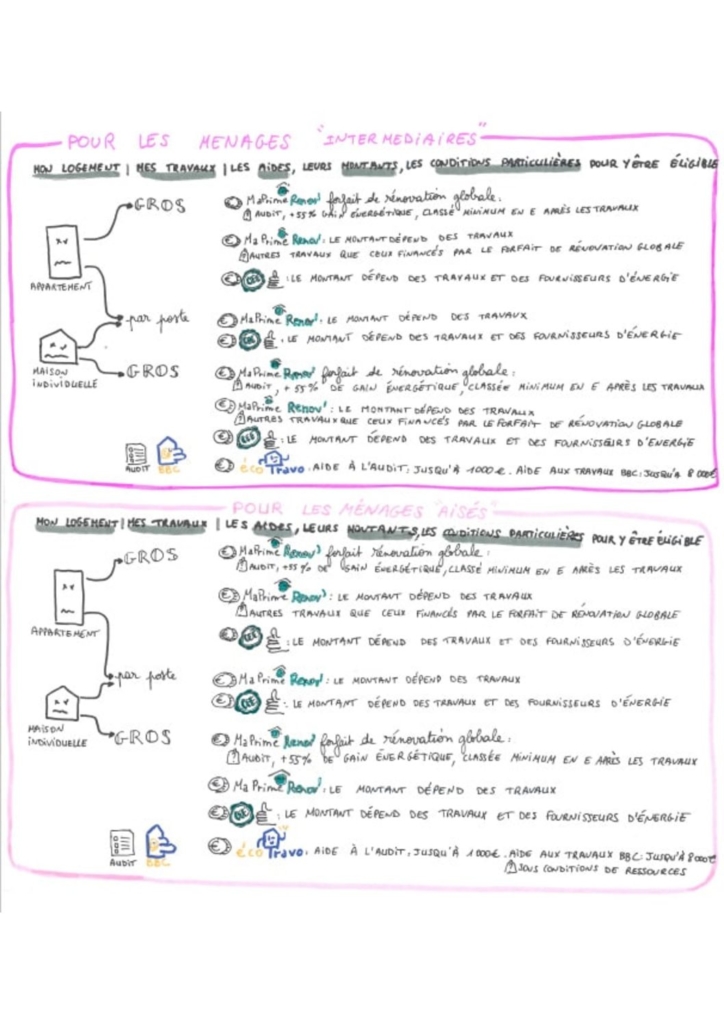 POUR LES MENAGES "INTERMEDIAIRES"
MON LOGEMENT | MES TRAVAUX | LES AIDES, LEURS MONTANTS, LES CONDITIONS PARTICULIÈRES POUR Y ÊTRE ÉLIGIBLE
GROS
€ MaPrime Renov' forfait de rénovation globale:
! AUDIT, +55% GAIN ÉNERGÉTIQUE, CLASSÉ MINIMUM EN E APRÈS LES TRAVAUX
€ MaPrime Renov': LE MONTANT DÉPEND DES TRAVAUX
! AUTRES TRAVAUX QUE CEUX FINANCÉS PAR LE FORFAIT DE RÉNOVATION GLOBALE
APPARTEMENT
€ CEE : LE MONTANT DÉPEND DES TRAVAUX ET DES FOURNISSEURS D'ÉNERGIE
par poste
€ MaPrime Renov': LE MONTANT DÉPEND DES TRAVAUX
€ CEE : LE MONTANT DÉPEND DES TRAVAUX ET DES FOURNISSEURS D'ÉNERGIE
MAISON INDIVIDUELLE
GROS
€ MaPrime Renov' forfait de rénovation globale:
! AUDIT, + 55% DE GAIN ÉNERGÉTIQUE, CLASSÉE MINIMUM EN E APRÈS LES TRAVAUX
€ MaPrime Renov': LE MONTANT DÉPEND DES TRAVAUX
! AUTRES TRAVAUX QUE CEUX FINANCÉS PAR LE FORFAIT DE RÉNOVATION GLOBALE
€ CEE : LE MONTANT DÉPEND DES TRAVAUX ET DES FOURNISSEURS D'ÉNERGIE
AUDIT BBC
€ éco Travo. AIDE À L'AUDIT: JUSQU'À 1000€. AIDE AUX TRAVAUX BBC: JUSQU'À 8 000€
POUR LES MÉNAGES "AISÉS"
MON LOGEMENT | MES TRAVAUX | LES AIDES, LEURS MONTANTS, LES CONDITIONS PARTICULIÈRES POUR Y ÊTRE ÉLIGIBLE
GROS
€ MaPrime Renov' forfait rénovation globale:
! AUDIT, +55% DE GAIN ÉNERGÉTIQUE, CLASSÉ MINIMUM EN E APRÈS LES TRAVAUX
€ MaPrime Renov': LE MONTANT DÉPEND DES TRAVAUX
! AUTRES TRAVAUX QUE CEUX FINANCÉS PAR LE FORFAIT DE RÉNOVATION GLOBALE
APPARTEMENT
€ CEE : LE MONTANT DÉPEND DES TRAVAUX ET DES FOURNISSEURS D'ÉNERGIE
par poste
€ MaPrime Renov': LE MONTANT DÉPEND DES TRAVAUX
€ CEE : LE MONTANT DÉPEND DES TRAVAUX ET DES FOURNISSEURS D'ÉNERGIE
MAISON INDIVIDUELLE
GROS
€ MaPrime Renov' forfait de rénovation globale:
! AUDIT, +55% DE GAIN ÉNERGÉTIQUE, CLASSÉE MINIMUM EN E APRÈS LES TRAVAUX
€ MaPrime Renov': LE MONTANT DÉPEND DES TRAVAUX
€ CEE : LE MONTANT DÉPEND DES TRAVAUX ET DES FOURNISSEURS D'ÉNERGIE
AUDIT BBC
€ éco Travo. AIDE À L'AUDIT: JUSQU'À 1000€. AIDE AUX TRAVAUX BBC: JUSQU'À 8000€
! SOUS CONDITIONS DE RESSOURCES